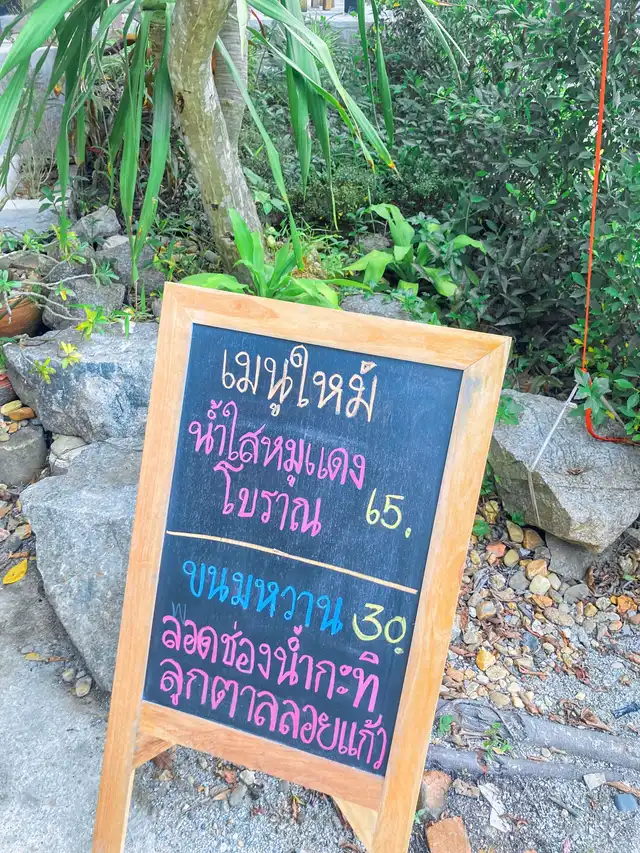 เมนูใหม่
น้ำใสหมูแดง
โบราณ 65.
ขนมหวาน 30.
ลอดช่องน้ำกะทิ
ลูกตาลลอยแก้ว